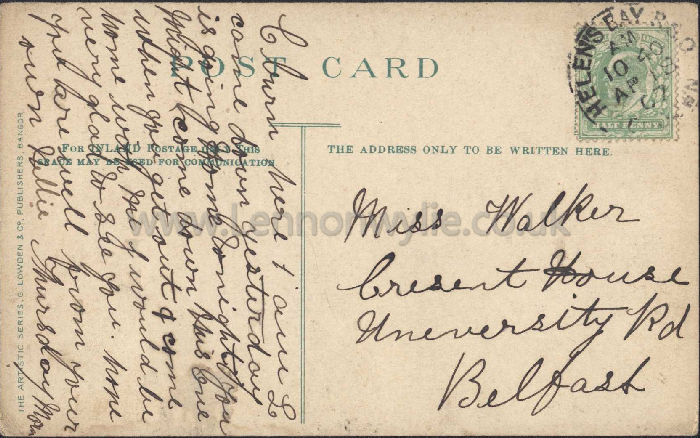 POST CARD
FOR INLAND POSTAGE ONLY THIS
SPACE MAY BE USED FOR COMMUNICATION
THE ADDRESS ONLY TO BE WRITTEN HERE.
HELEN'S BAY R.S.O.
AM
10
AP
07
HALF PENNY
Miss Walker
Cresent House
Uneversity Rd
Belfast
here I am I
came down yesterday
is going home tonight if you
come down this one
when you get out & come
home with me I would be
very glad to see you. hope
you are well from your
own Nellie Thursday Morn
THE ARTISTIC SERIES, G. LOWDEN & CO. PUBLISHERS, BANGOR
www.Lennonwylie.co.uk